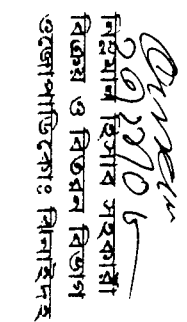 নিম্নমান হিসাব সহকারী
বিক্রয় ও বিতরন বিভাগ
ওজোপাডিকোঃ ঝিনাইদহ